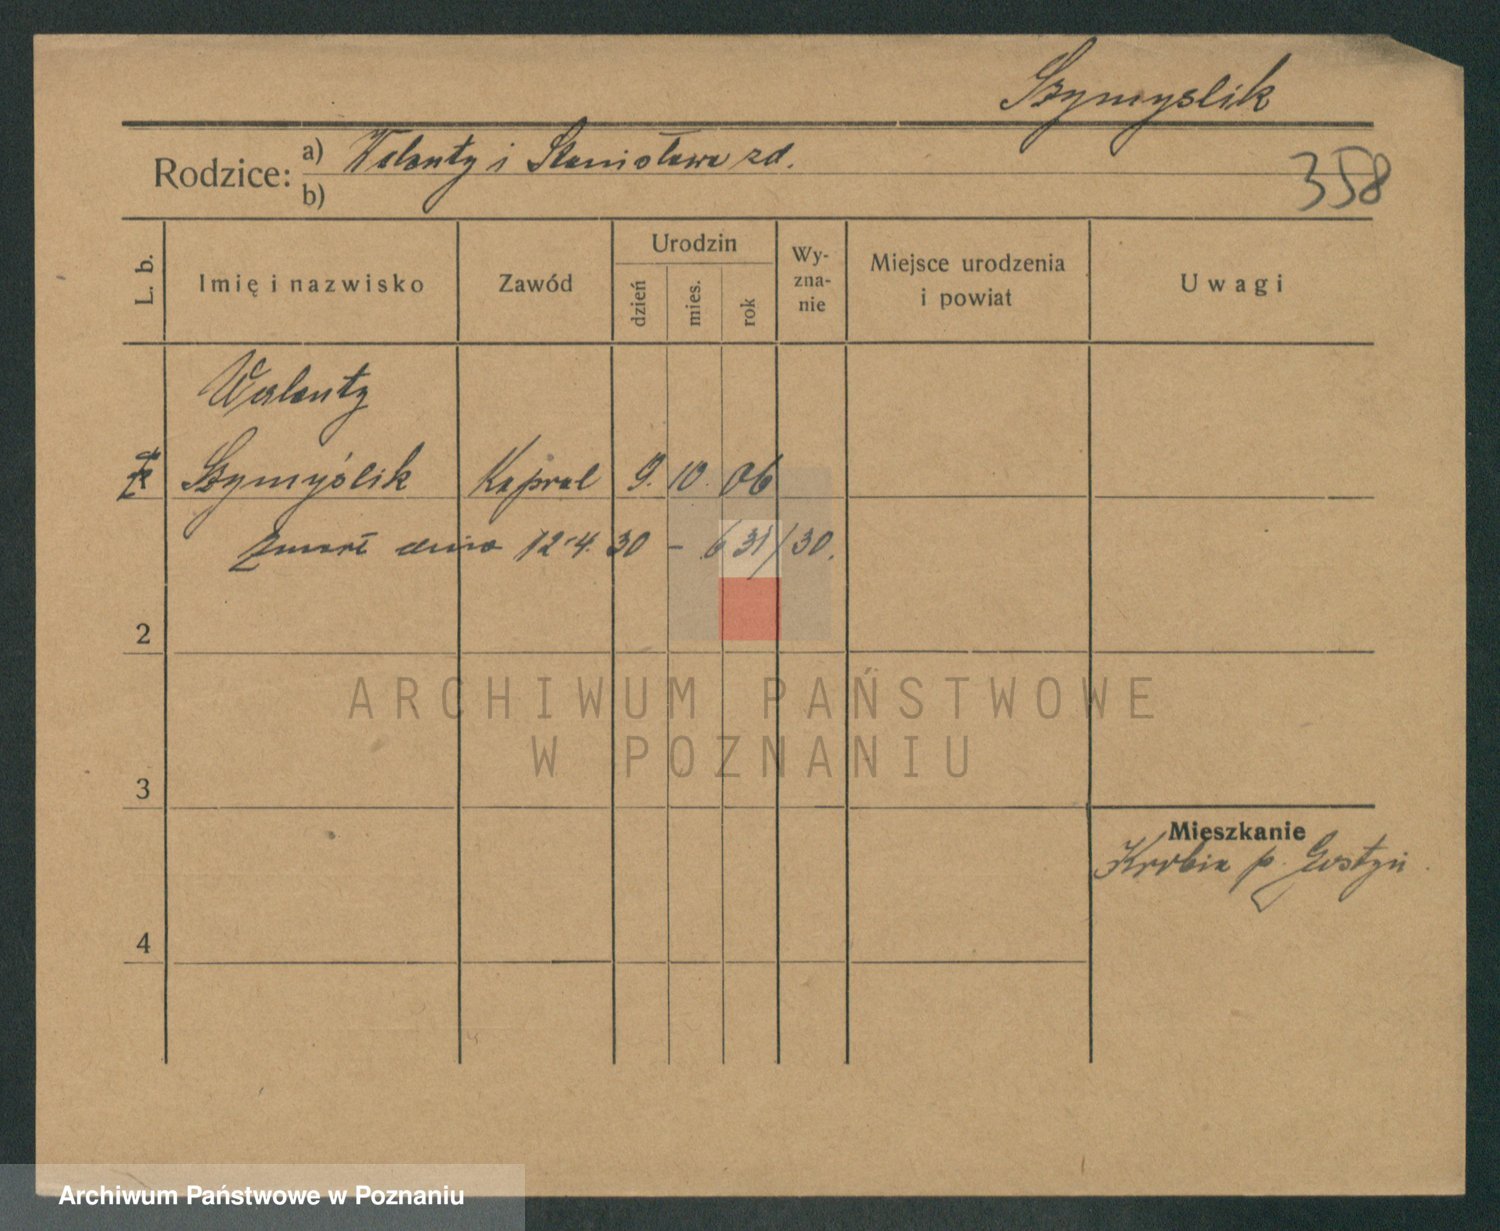 Szymyslik
Rodzice: a) Walenty i Stanisława zd.
b)
358
L. b. Imię i nazwisko Zawód Urodzin dzień mies. rok Wy-znanie Miejsce urodzenia i powiat Uwagi
Walenty
Szymyślik Kapral 9. 10. 06
zmarł dnia 12.4.30 - 631/30.
2
ARCHIWUM PAŃSTWOWE
W POZNANIU
3
Mieszkanie
Krobia p. Gostyń
4
Archiwum Państwowe w Poznaniu